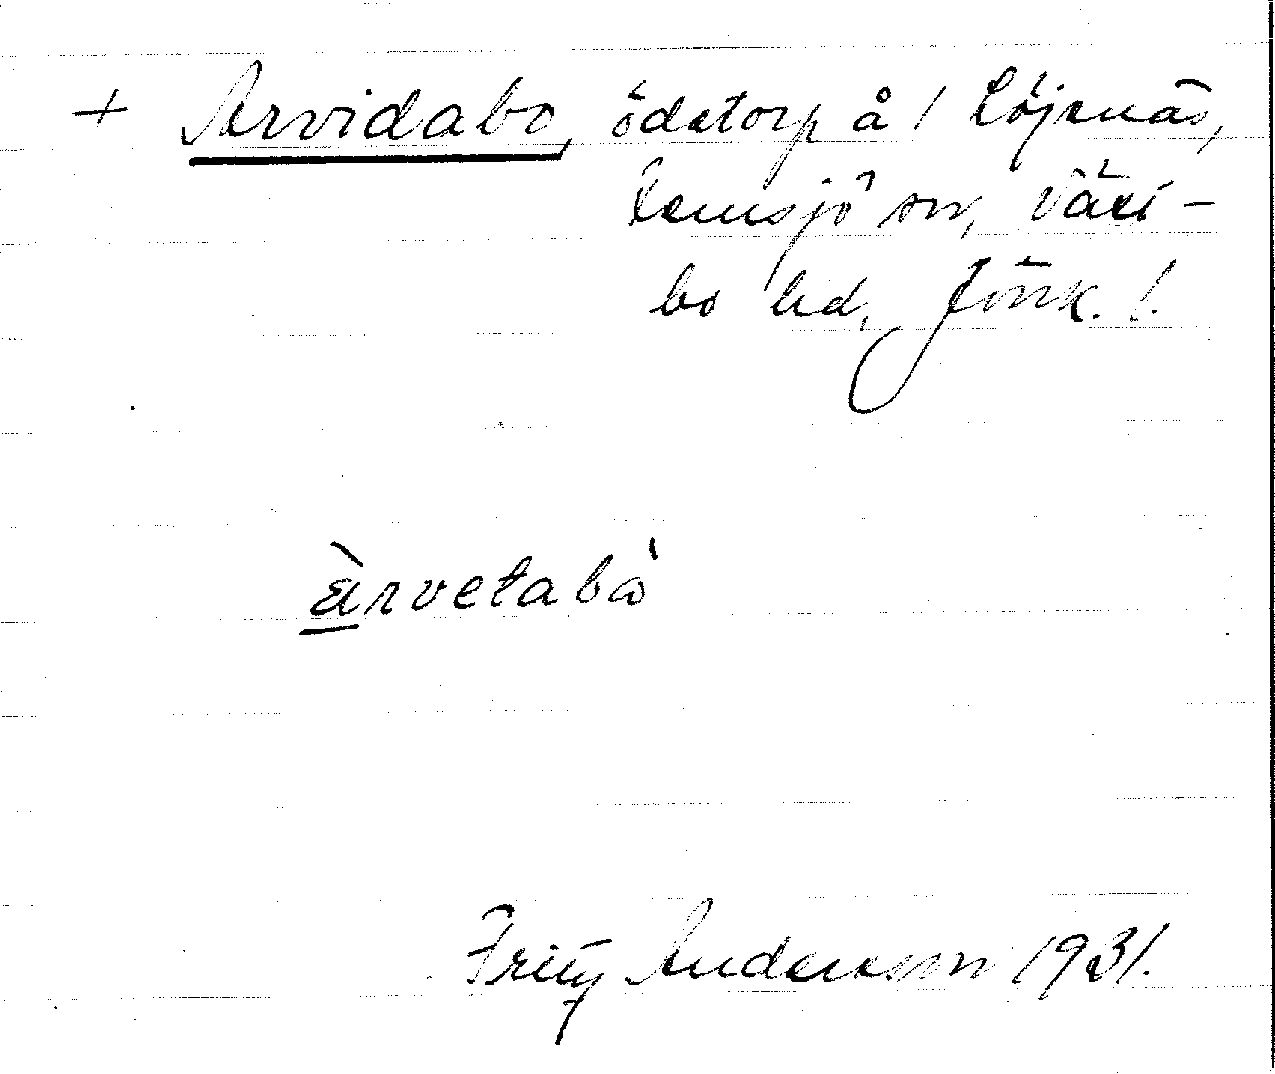 + Arvidabo, ödetorp å 1 Löjenäs,
Femsjö sn, Väst-
bo hd, Jönk. l.
ärvetabå
Fritz Andersson 1931.